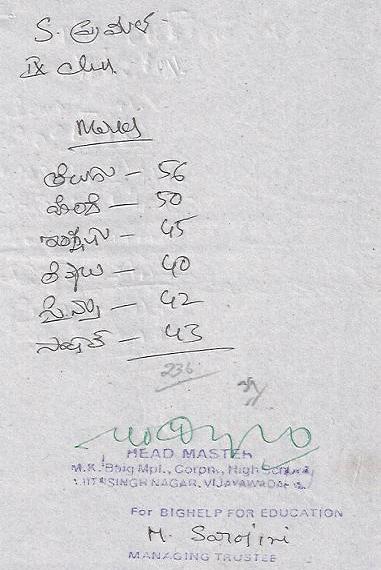 S.
IX class
Marks
తెలుగు – 56
హిందీ – 50
ఇంగ్లీషు – 45
లెక్కలు – 40
సైన్సు – 42
సోషల్ – 43
236
HEAD MASTER
M.K. Baig Mpl., Corpn., High School
SINGH NAGAR, VIJAYAWADA
For BIGHELP FOR EDUCATION
M. Sarojini
MANAGING TRUSTEE